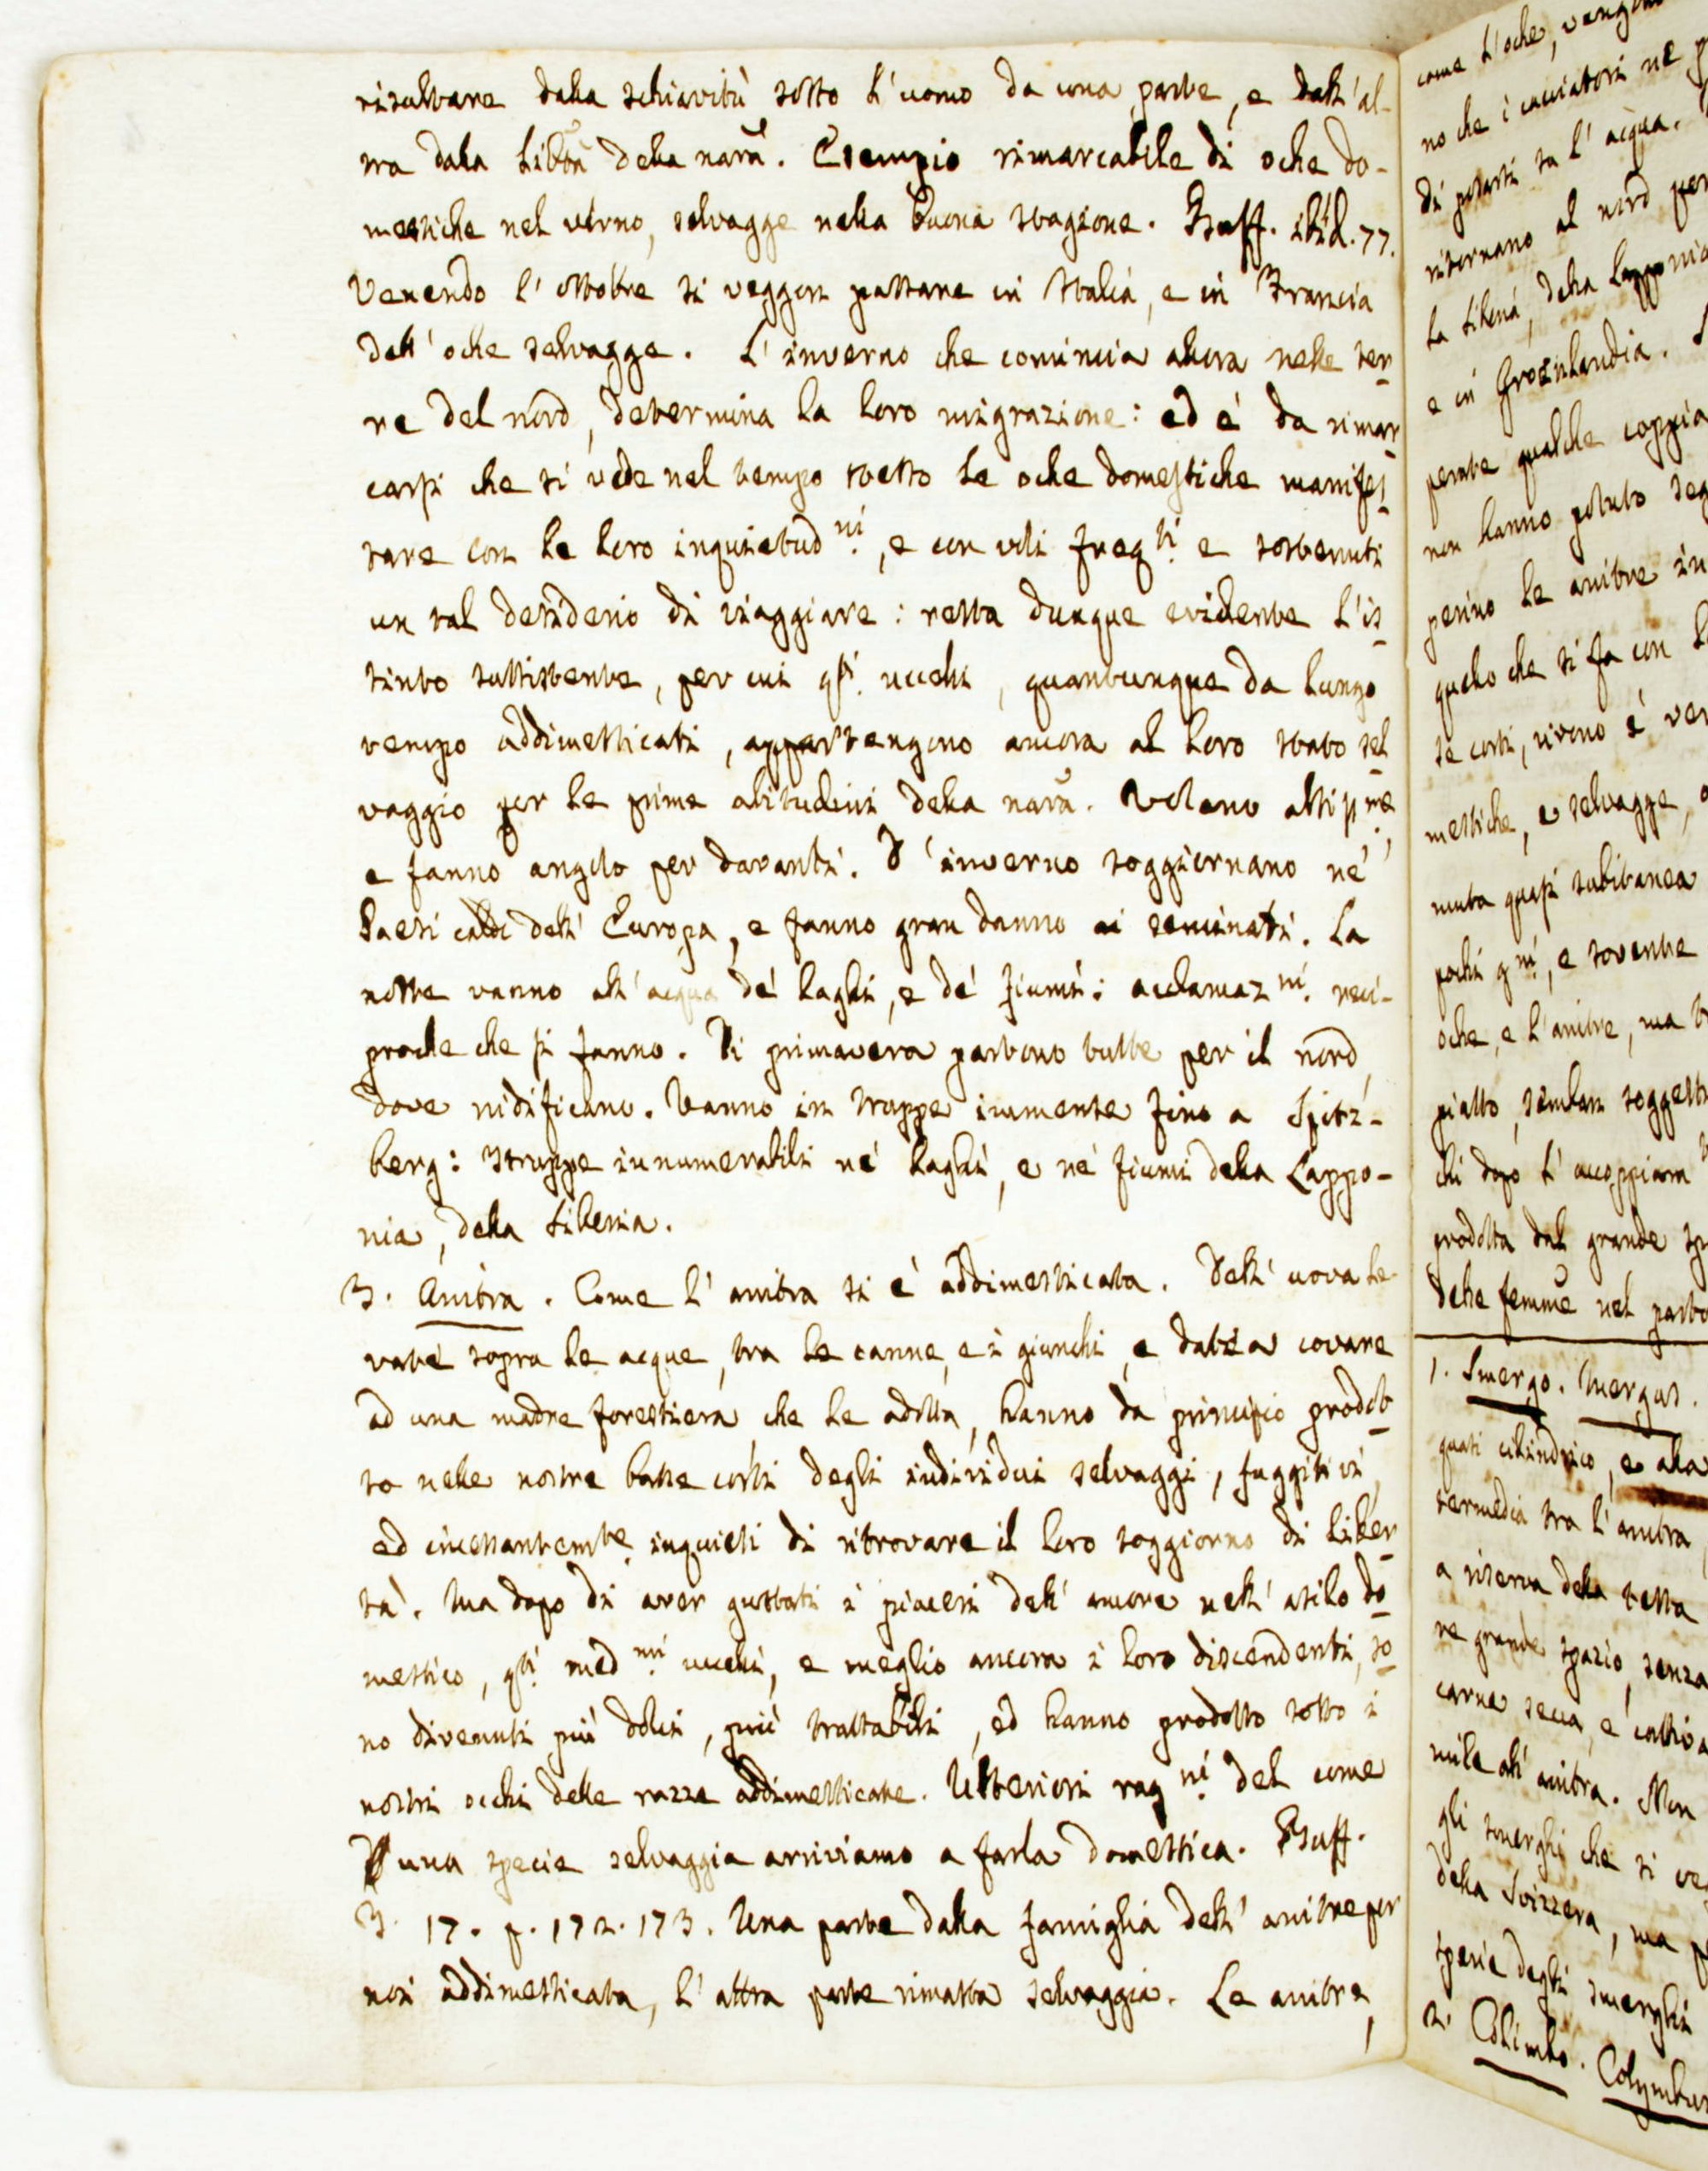 risultare dalla schiavitù sotto l'uomo da una parte, e dall'al-
tra dalla libtà della narã. Esempio rimarcabile di oche do-
mestiche nel verno, selvagge nella buona stagione. Buff. ibid. 77.
Venendo l'ottobre si veggon passare in Italia, e in Francia
dell'oche selvagge. L'inverno che comincia allora nelle ter
re del nord, determina la loro migrazione: ed è da rimar
carsi che si vede nel tempo stesso le oche domestiche manifes
tare con le loro inquietud.ni, e con voli freq.ti e sostenuti
un tal desiderio di viaggiare: resta dunque evidente l'is
tinto sussistente, per cui qti. uccelli, quantunque da lungo
tempo addimesticati, appartengono ancora al loro stato sel
vaggio per le prime abitudini della narã. Volano altiss.me,
e fanno angolo per davanti. D'inverno soggiornano ne'
Paesi caldi dell'Europa, e fanno gran danno ai seminati. La
notte vanno all'acqua de' laghi, e de' fiumi: acclamaz.ni reci-
proche che si fanno. Di primavera partono tutte per il nord,
dove nidificano. Vanno in truppe fino a Spitz-
berg: truppe innumerabili ne' laghi, e ne' fiumi della Lappo-
nia, della Siberia.
3. Anitra. Come l'anitra si è addimesticata. Dell'uova le
vate sopra le acque, tra le canne, e i giunchi, e date a covare
ad una madre forestiera, che le adotta, hanno da principio prodot
to nelle nostre basse corti degli individui selvaggi, fuggitivi,
ed incessantem.te inquieti di ritrovare il loro soggiorno di liber
tà. Ma dopo di aver gustati i piaceri dell'amore nell'asilo do
mestico, qti. med.mi uccelli, e meglio ancora i loro discendenti, so
no divenuti più dolci, più trattabili, ed hanno prodotto sotto i
nostri occhi delle razze addimesticate. Ulteriori rag.ni del come
D'una specie selvaggia arriviamo a farla domestica. Buff.
T. 17. p. 172. 173. Una parte dalla famiglia dell'anitre per
noi addimesticata, l'altra parte rimasta selvaggia. Le anitre,
come l'oche,
no che i cacciatori ne
di posarsi su l'acqua.
ritornano al nord per
la Siberia, della Lapponia
e in Groenlandia.
qualche coppia
non hanno potuto
le anitre
quello che si fa con
se corti, vivono è
mestiche, e selvagge,
muta quasi subitanea
pochi g.ni, e sovente
oche, e l'anitre, ma
piatto, sembran
chi dopo l'accoppiam
prodotta dal grande
delle femme nel parto
1. Smergo. Mergus.
quasi cilindrico, e
termedia tra l'anitra,
a riserva della testa
re grande spazio, senza
carne secca, e cattiva
mile all'anitra. Non
gli smerghi che si
della Svizzera, ma
specie degli smerghi
2. Colimbo. Colymbus